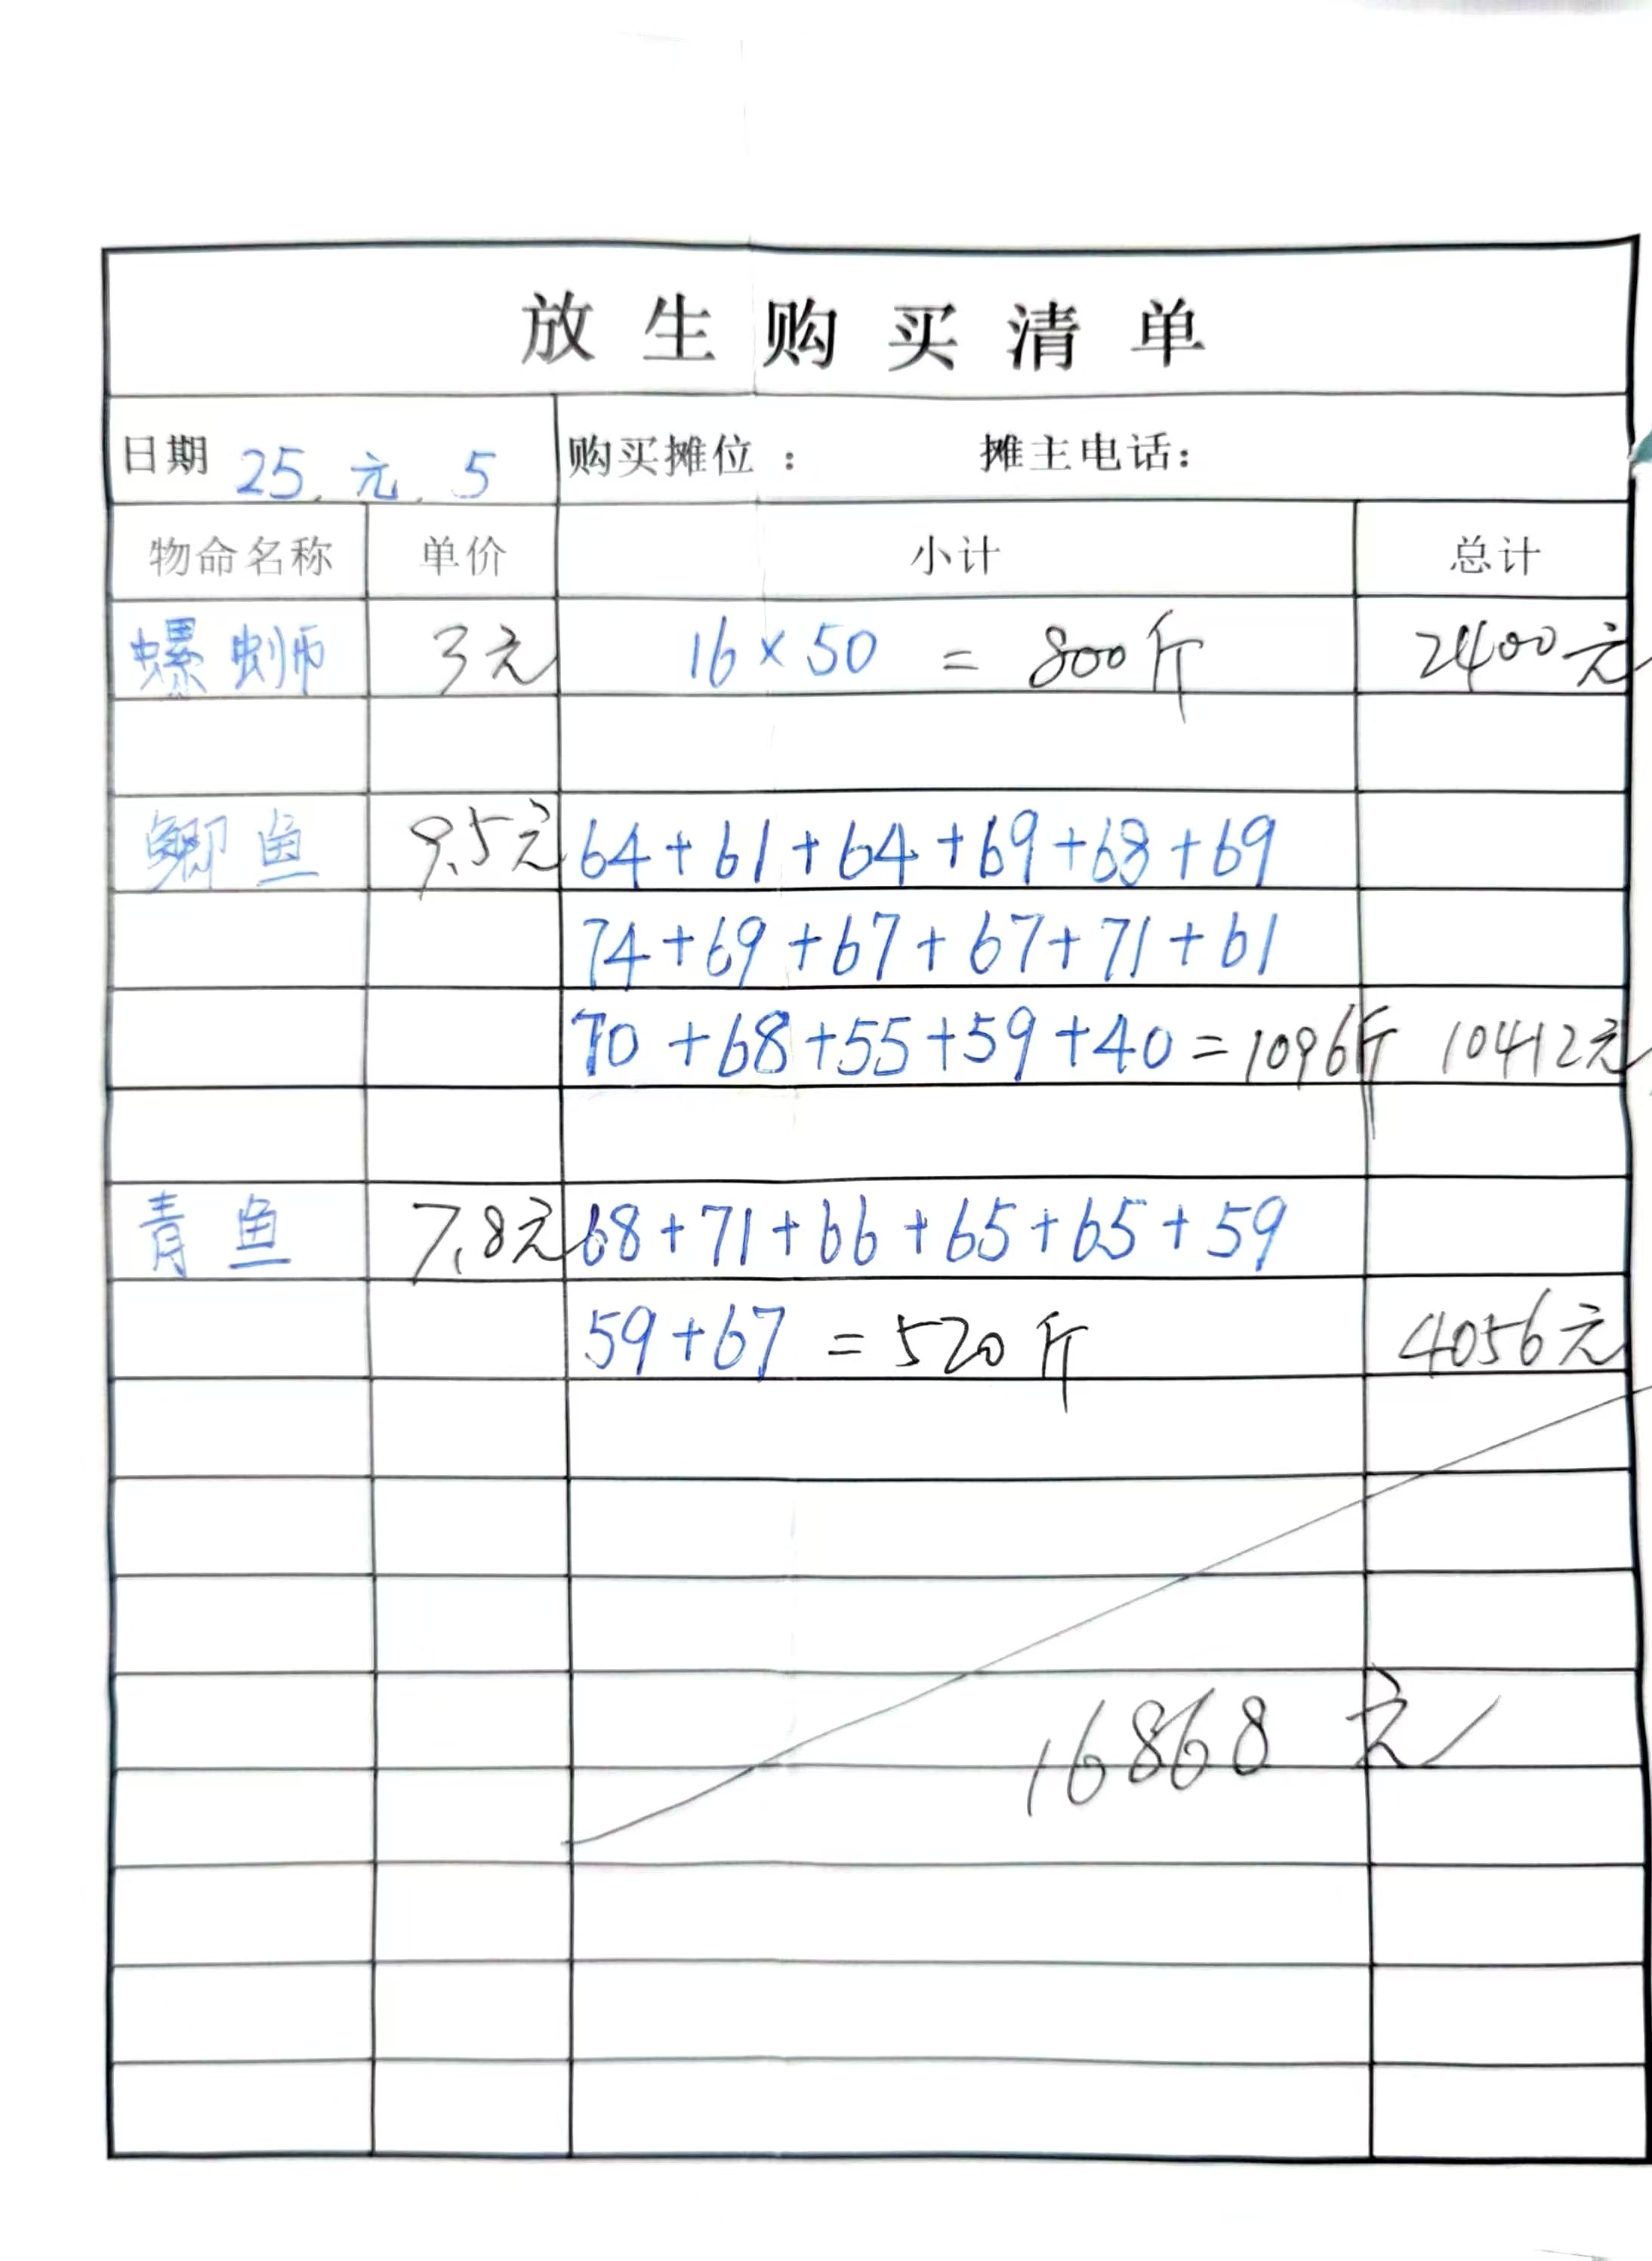 放生购买清单
日期 25.元.5 购买摊位： 摊主电话：
物命名称 单价 小计 总计
螺蛳 3元 16×50 = 800斤 2400元
鲫鱼 9.5元 64+61+64+69+68+69
74+69+67+67+71+61
70+68+55+59+40=1096斤 10412元
青鱼 7.8元 68+71+66+65+65+59
59+67 = 520斤 4056元
16868元